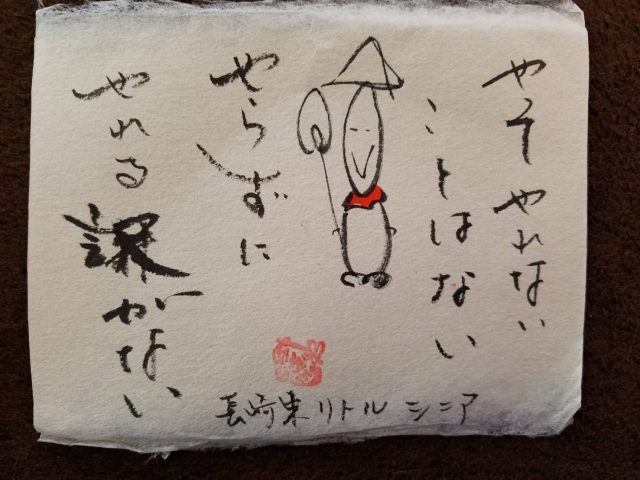 やってやれない
ことはない
やらずに
やれる譯がない
長崎東リトルシニア